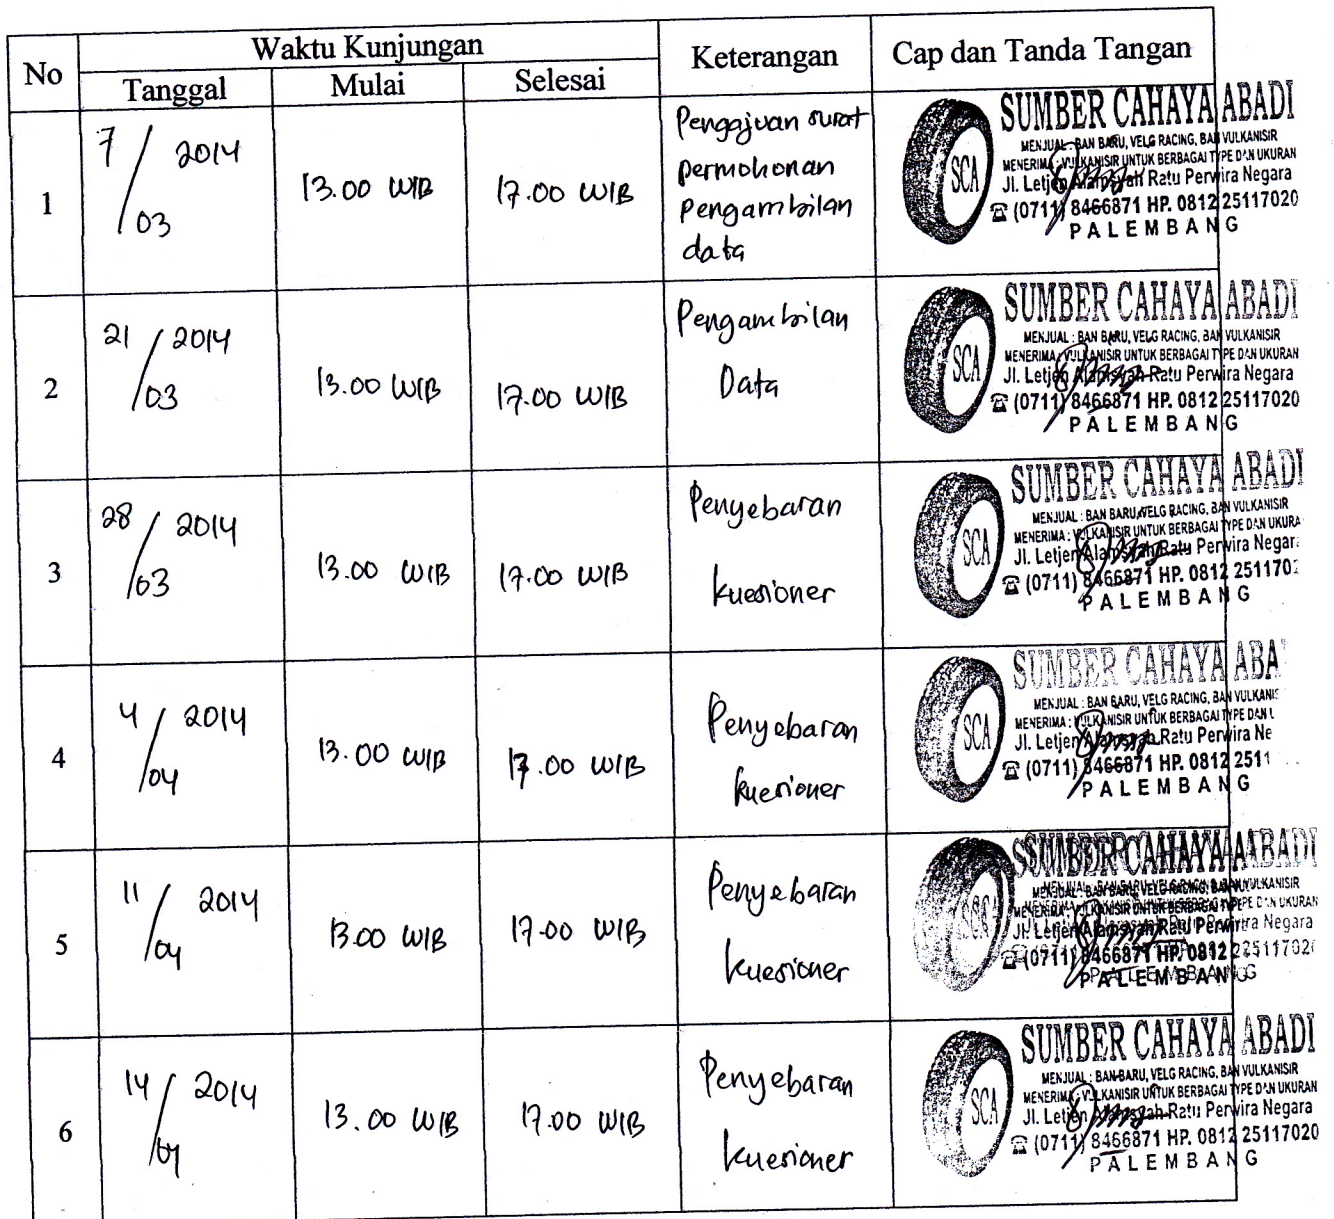 No
Waktu Kunjungan
Keterangan
Cap dan Tanda Tangan
Tanggal
Mulai
Selesai
1
7/03 2014
13.00 WIB
17.00 WIB
Pengajuan surat
permohonan
pengambilan
data
SUMBER CAHAYA ABADI
MENJUAL : BAN BARU, VELG RACING, BAN VULKANISIR
MENERIMA : VULKANISIR UNTUK BERBAGAI TYPE DAN UKURAN
SCA
Jl. Letjen Alamsyah Ratu Perwira Negara
(0711) 8466871 HP. 0812 25117020
PALEMBANG
2
21/03 2014
13.00 WIB
17.00 WIB
Pengambilan
Data
SUMBER CAHAYA ABADI
MENJUAL : BAN BARU, VELG RACING, BAN VULKANISIR
MENERIMA : VULKANISIR UNTUK BERBAGAI TYPE DAN UKURAN
SCA
Jl. Letjen Alamsyah Ratu Perwira Negara
(0711) 8466871 HP. 0812 25117020
PALEMBANG
3
28/03 2014
13.00 WIB
17.00 WIB
Penyebaran
kuesioner
SUMBER CAHAYA ABADI
MENJUAL : BAN BARU, VELG RACING, BAN VULKANISIR
MENERIMA : VULKANISIR UNTUK BERBAGAI TYPE DAN UKURA
SCA
Jl. Letjen Alamsyah Ratu Perwira Negar
(0711) 8466871 HP. 0812 251170
PALEMBANG
4
4/04 2014
13.00 WIB
17.00 WIB
Penyebaran
kuesioner
SUMBER CAHAYA ABA
MENJUAL : BAN BARU, VELG RACING, BAN VULKANIS
MENERIMA : VULKANISIR UNTUK BERBAGAI TYPE DAN U
SCA
Jl. Letjen Alamsyah Ratu Perwira Ne
(0711) 8466871 HP. 0812 2511
PALEMBANG
5
11/04 2014
13.00 WIB
17.00 WIB
Penyebaran
kuesioner
SUMBER CAHAYA ABADI
MENJUAL : BAN BARU, VELG RACING, BAN VULKANISIR
MENERIMA : VULKANISIR UNTUK BERBAGAI TYPE DAN UKURAN
SCA
Jl. Letjen Alamsyah Ratu Perwira Negara
(0711) 8466871 HP. 0812 2511702
PALEMBANG
6
14/04 2014
13.00 WIB
17.00 WIB
Penyebaran
kuesioner
SUMBER CAHAYA ABADI
MENJUAL : BAN BARU, VELG RACING, BAN VULKANISIR
MENERIMA : VULKANISIR UNTUK BERBAGAI TYPE DAN UKURAN
SCA
Jl. Letjen Alamsyah Ratu Perwira Negara
(0711) 8466871 HP. 0812 25117020
PALEMBANG